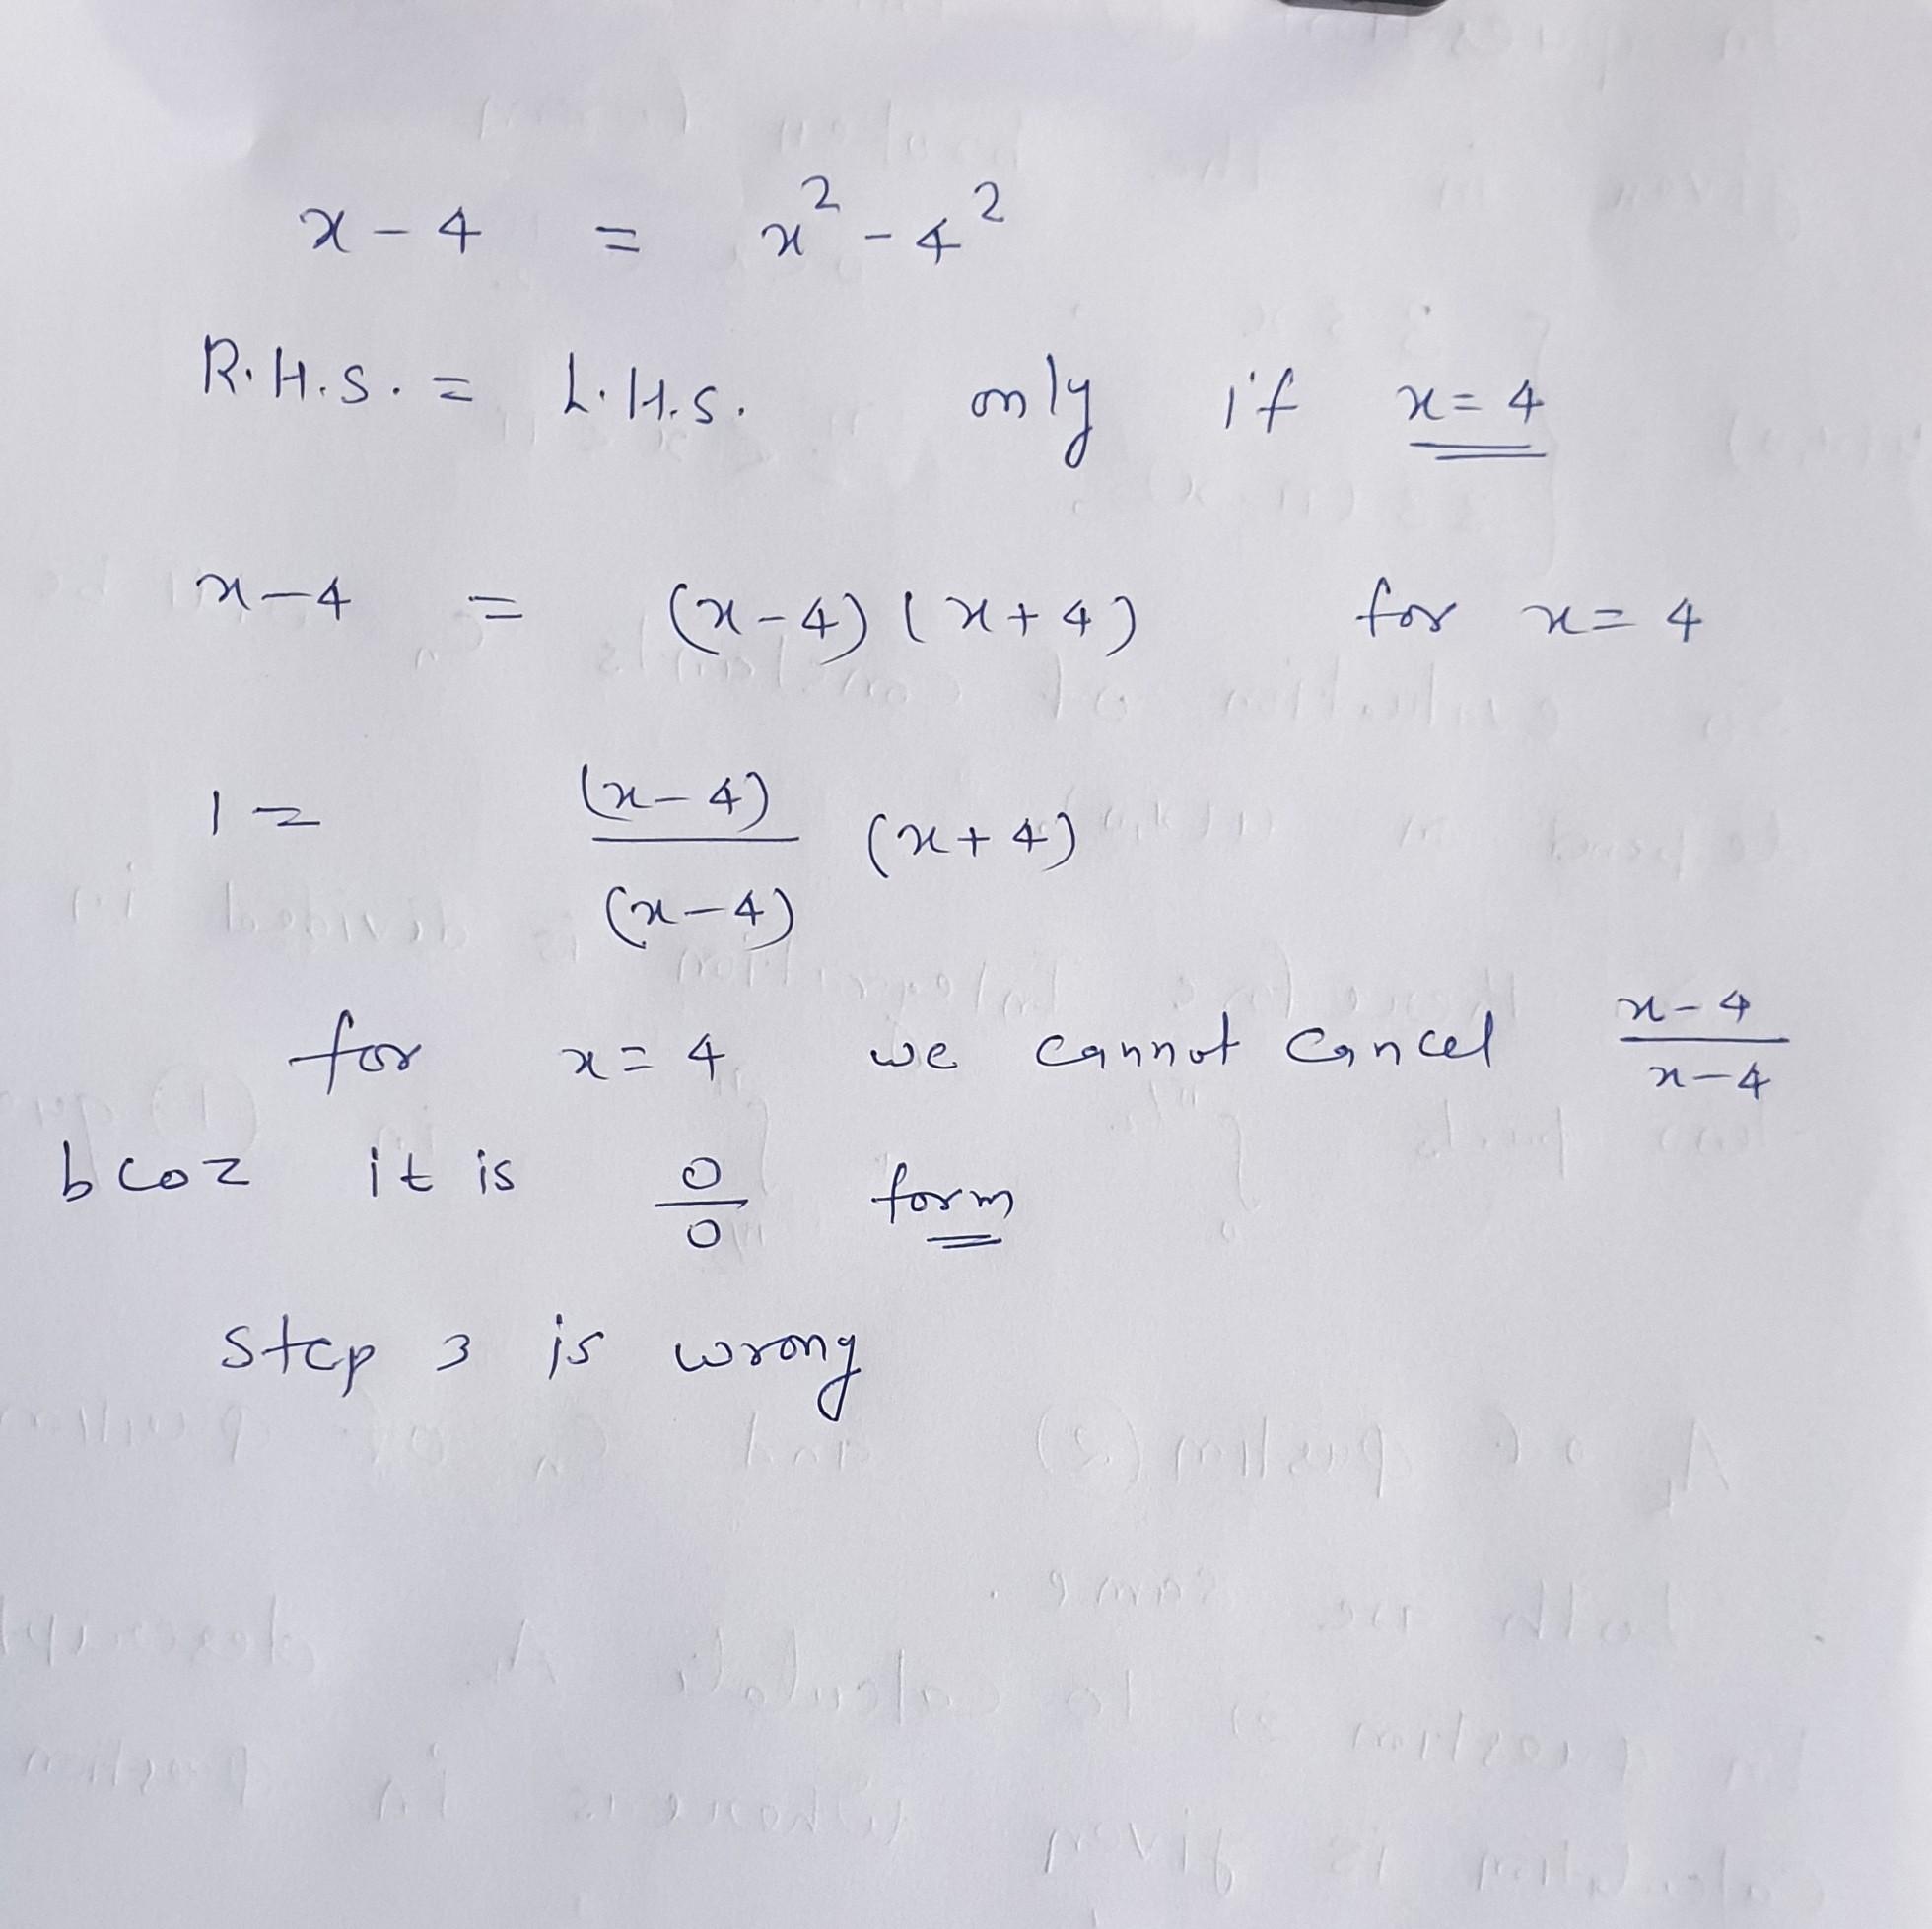 x - 4 = x² - 4²
R.H.S. = L.H.S. only if x = 4
x - 4 = (x - 4) (x + 4) for x = 4
1 = (x - 4)/(x - 4) (x + 4)
for x = 4 we cannot cancel (x - 4)/(x - 4)
bcoz it is 0/0 form
step 3 is wrong